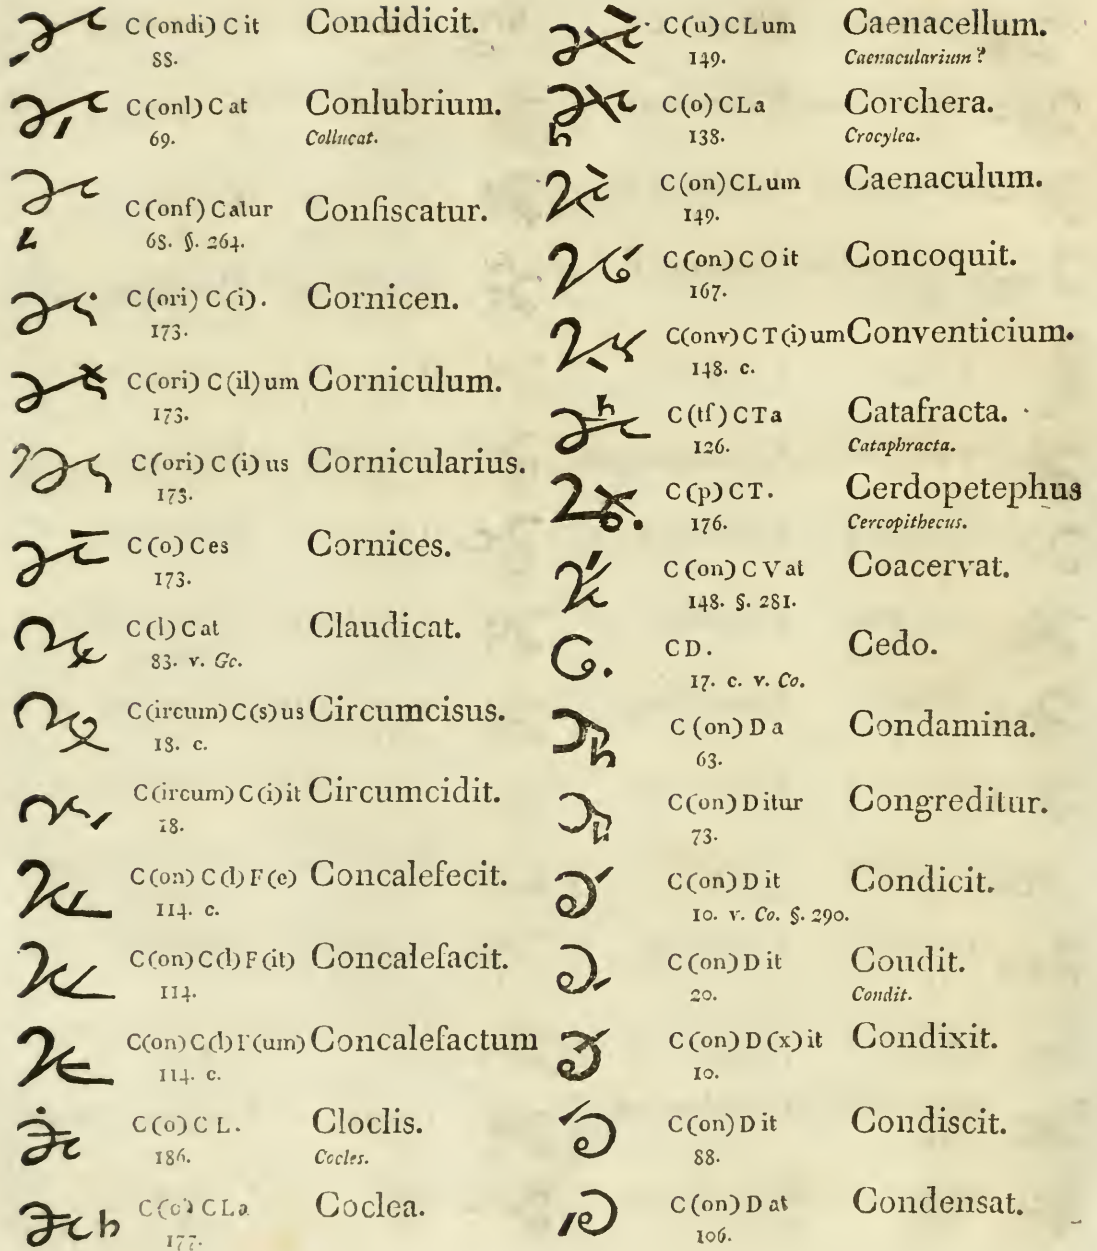 C (ondi) C it Condidicit.
88.
C (onl) C at Conlubrium.
69. Collucat.
C (onf) Catur Confiscatur.
68. §. 264.
C (ori) C (i). Cornicen.
173.
C (ori) C (il) um Corniculum.
173.
C (ori) C (i) us Cornicularius.
173.
C (o) Ces Cornices.
173.
C (l) C at Claudicat.
83. v. Gc.
C (ircum) C (s) us Circumcisus.
18. c.
C (ircum) C (i) it Circumcidit.
18.
C (on) C (l) F (e) Concalefecit.
114. c.
C (on) C (l) F (it) Concalefacit.
114.
C (on) C (l) F (um) Concalefactum
114. c.
C (o) C L. Cloclis.
186. Cocles.
C (o) C L a Coclea.
177.
C (u) C L um Caenacellum.
149. Caenacularium ?
C (o) C L a Corchera.
138. Crocylea.
C (on) C L um Caenaculum.
149.
C (on) C O it Concoquit.
167.
C (onv) C T (i) um Conventicium.
148. c.
C (tf) C T a Catafracta.
126. Cataphracta.
C (p) C T. Cerdopetephus
176. Cercopithecus.
C (on) C V at Coacervat.
148. §. 281.
C D. Cedo.
17. c. v. Co.
C (on) D a Condamina.
63.
C (on) D itur Congreditur.
73.
C (on) D it Condicit.
10. v. Co. §. 290.
C (on) D it Condit.
20. Condit.
C (on) D (x) it Condixit.
10.
C (on) D it Condiscit.
88.
C (on) D at Condensat.
106.